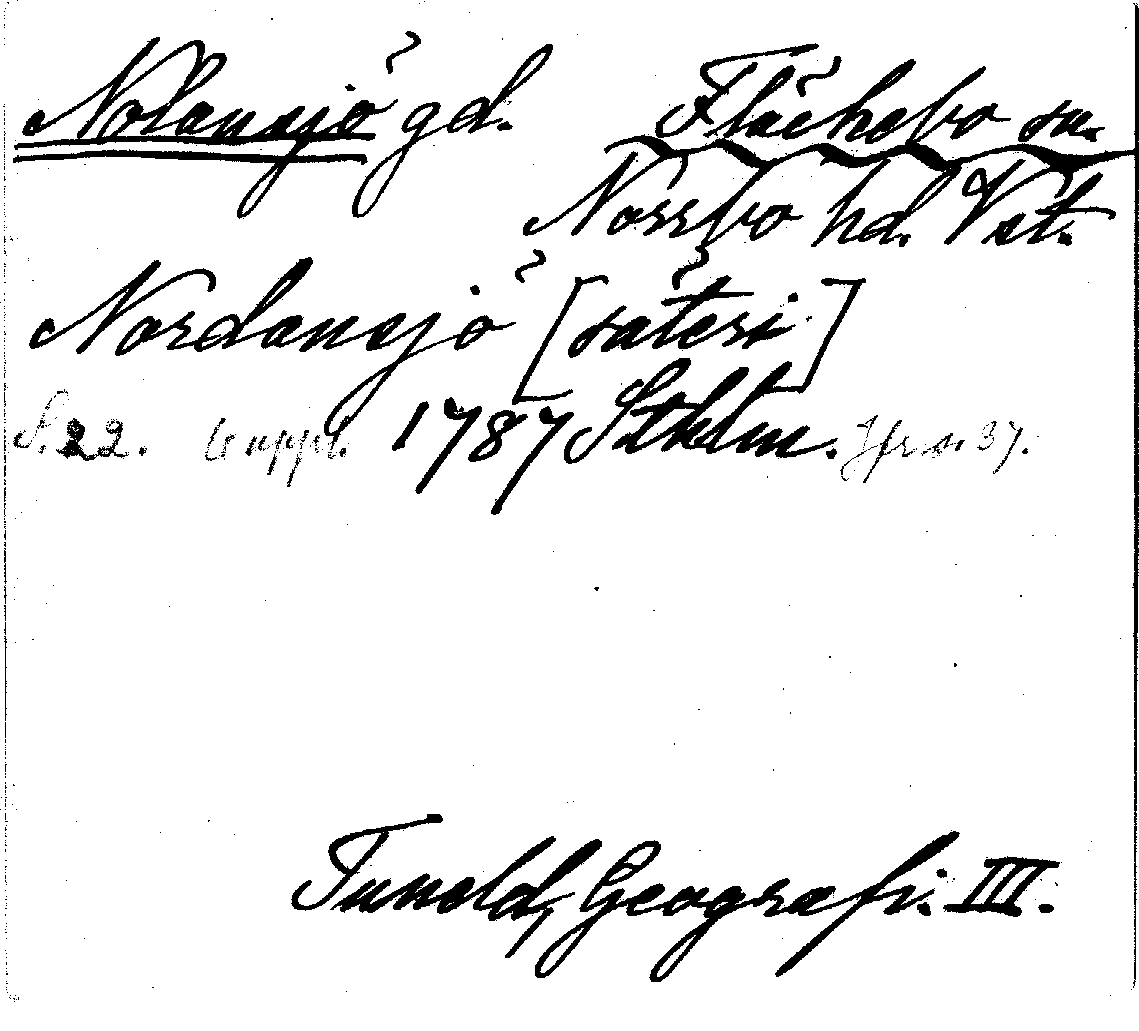 Nolansjö gd. Fläckebo sn.
Norrbo hd. Vst.
Nordansjö [säteri]
S. 22. 6 uppl. 1787 Sthlm. Jfr s. 37.
Tuneld, Geografi. III.